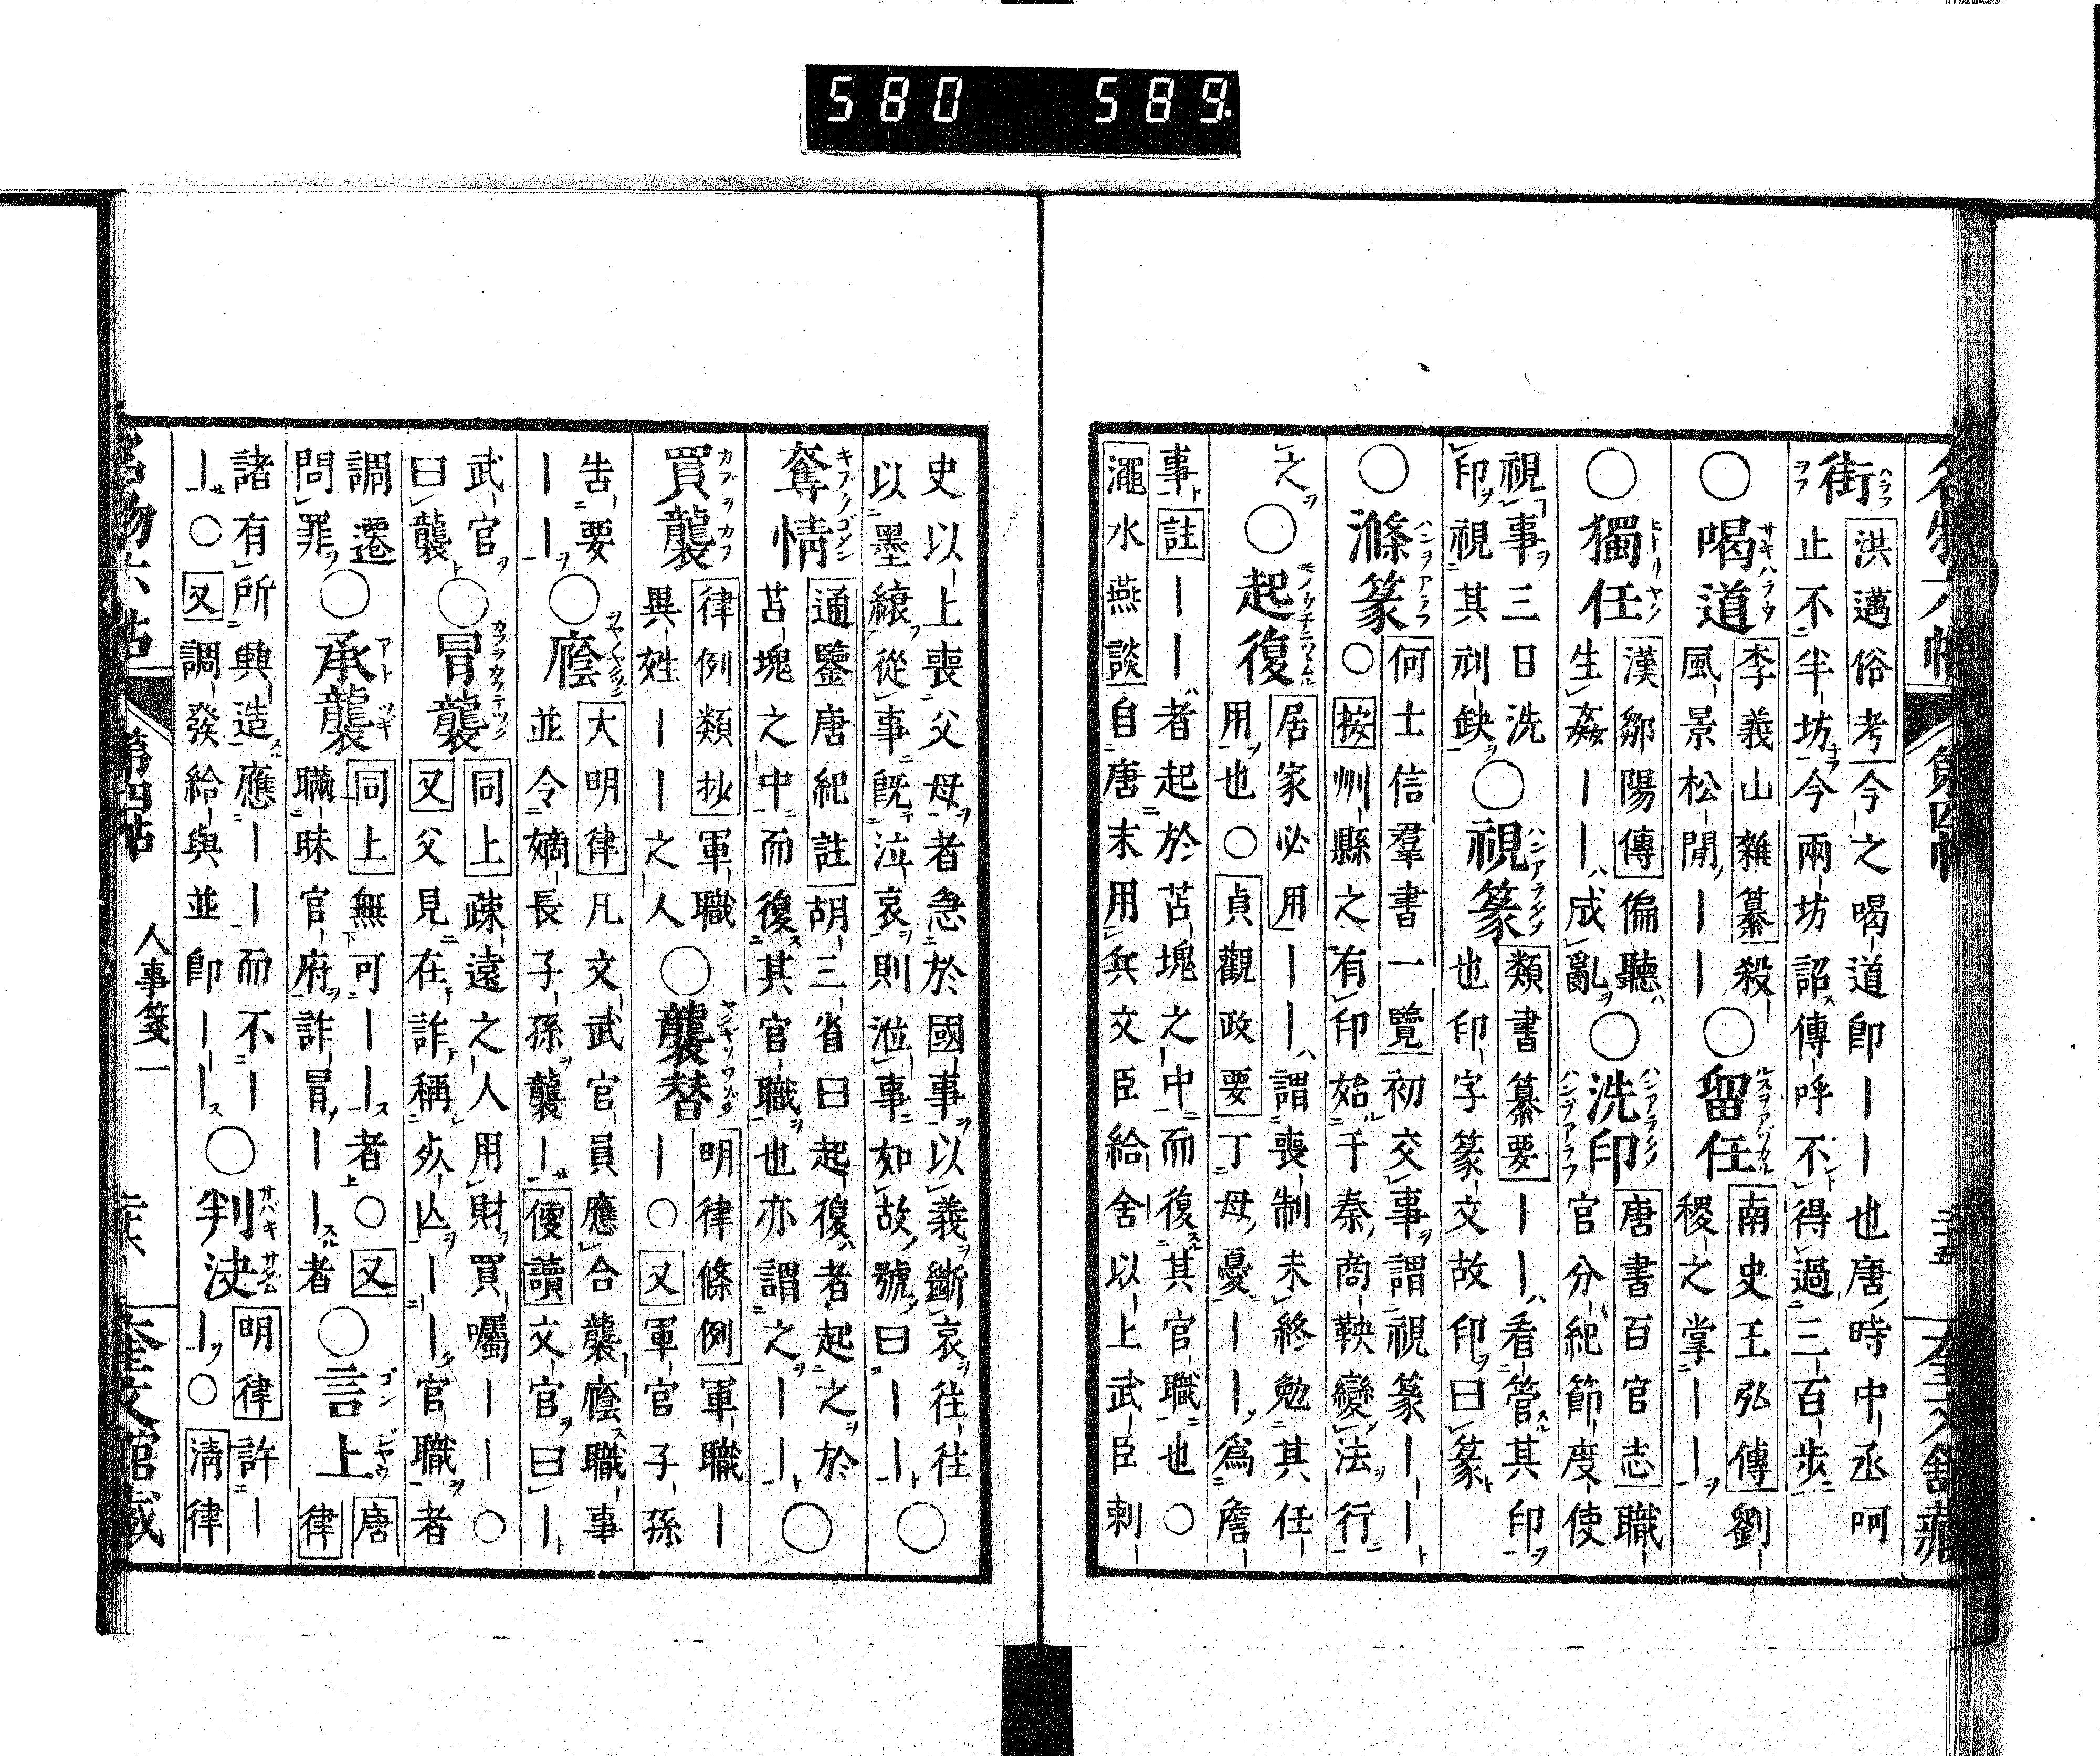 名物六帖 第四帖 二十五 奎文館藏
街 洪邁俗考今之喝道即——也唐時中丞呵
止不半坊今兩坊詔傳呼不得過三百步
○喝道 李義山雜纂殺風景松間—— ○留任 南史王弘傳劉稷之掌——
○獨任 漢鄒陽傳偏聽生姦——成亂 ○洗印 唐書百官志職官分紀節度使
視事三日洗印視其刓缺 ○視篆 類書纂要——看管其印也印字篆文故印曰篆
○滌篆 何士信羣書一覽初交事謂視篆——○按州縣之有印始于秦商鞅變法行
之 ○起復 居家必用——謂喪制未終勉其任用也○貞觀政要丁母憂——爲詹
事註——者起於苫塊之中而復其官職也○
澠水燕談自唐末用兵文臣給舍以上武臣刺
史以上喪父母者急於國事以義斷哀往往
以墨縗從事既泣哀則涖事如故號曰—— ○
奪情 通鑒唐紀註胡三省曰起復者起之於苫塊之中而復其官職也亦謂之—— ○
買襲 律例類抄軍職—異姓——之人 ○襲替 明律條例軍職——○又軍官子孫
告要—— ○廕 大明律凡文武官員應合襲廕職事並令嫡長子孫襲—便讀文官曰—
武官曰襲 ○冒襲 同上疎遠之人用財買囑——○又父見在詐稱死亡——官職者
調遷問罪 ○承襲 同上無可——者○又瞞昧官府詐冒——者 ○言上 唐律
諸有所興造應——而不——○又調發給與並即—— ○判決 明律許——○淸律
名物六帖 第四帖 人事箋一 二十六 奎文館藏
580 589